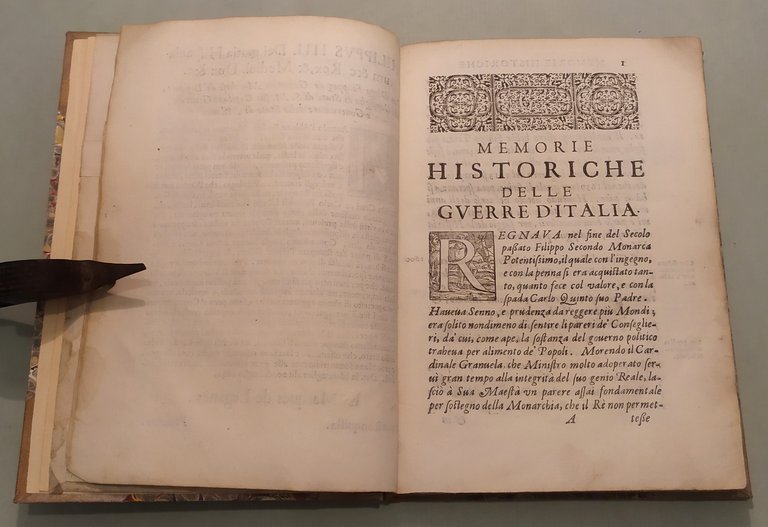 1
MEMORIE
HISTORICHE
DELLE
GVERRE D'ITALIA.
REGNAVA nel fine del Secolo
paſſato Filippo Secondo Monarca
Potentiſsimo, il quale con l'ingegno,
e con la penna ſi era acquiſtato tan-
to, quanto fece col valore, e con la
ſpada Carlo Quinto ſuo Padre.
Haueua Senno, e prudenza da reggere più Mondi;
era ſolito nondimeno di ſentire li pareri de' Conſeglie-
ri, da' cui, come ape, la ſoſtanza del governo politico
traheua per alimento de' Popoli. Morendo il Car-
dinale Granuela, che Miniſtro molto adoperato ſer-
uì gran tempo alla integrità del ſuo genio Reale, la-
ſciò à Sua Maeſtà un parere aſſai fondamentale
per ſoſtegno della Monarchia, che il Rè non permet-
A teſſe